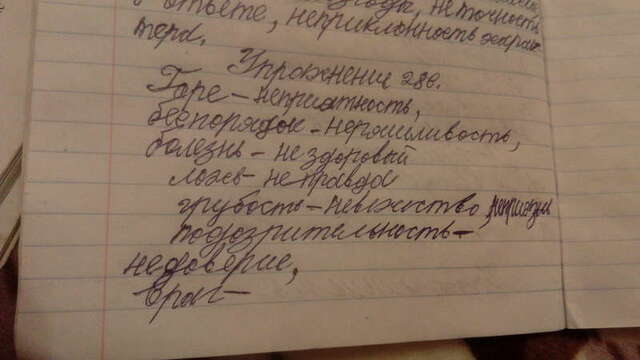 ответе, неприклонность харак
тера.
Упражнение 286.
Горе – неприятность,
беспорядок – неряшливость,
болезнь – не здоровый
ложь – не правда
грубость – невежество, неприязнь
подозрительность –
недоверие,
враг –